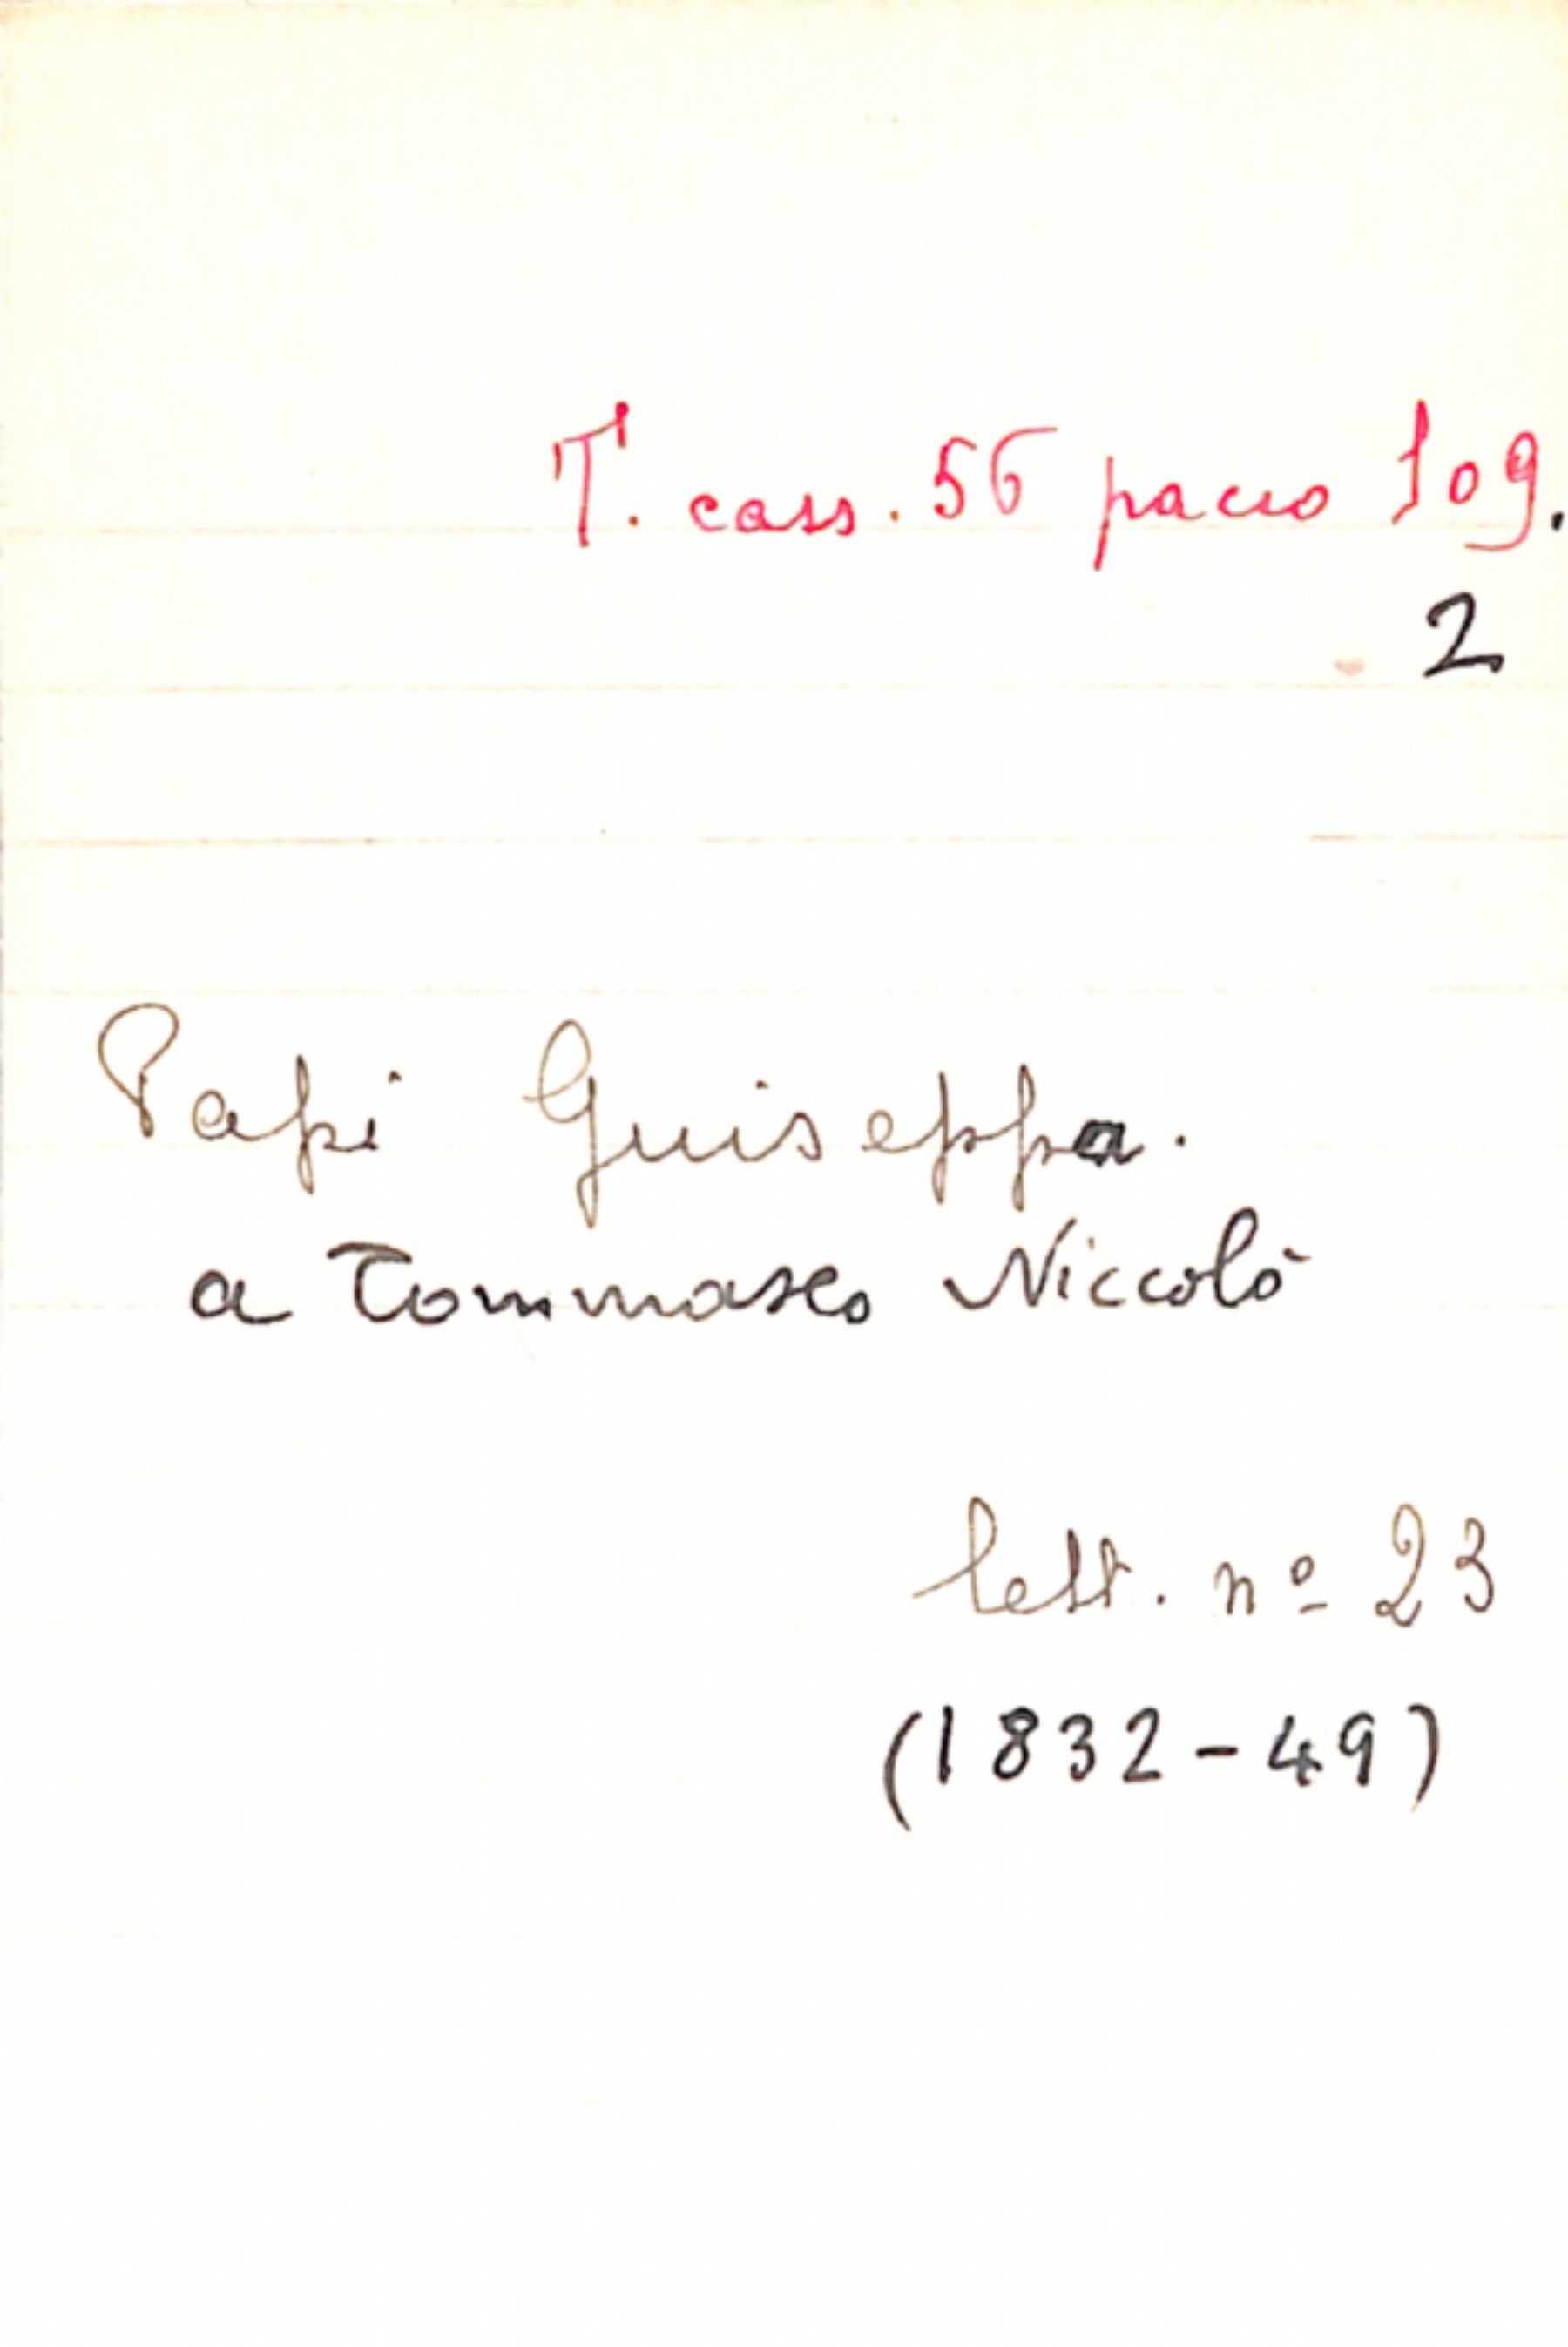 T. cass. 56 pacco 109.
2
Papi Guiseppa.
a Tommaseo Niccolò
lett. nº 23
(1832-49)